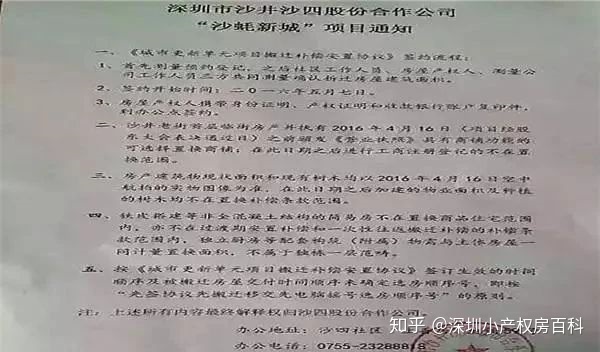 深圳市沙井沙四股份合作公司
“沙蚝新城”项目通知
一、《城市更新单元项目搬迁补偿安置协议》签约流程:
1、首先测量预约登记,之后社区工作人员、房屋产权人、测量公
司工作人员三方共同测量确认拆迁房屋建筑面积。
2、签约开始时间:二0一六年五月七日。
3、房屋产权人携带身份证明、产权证明和收款银行账户复印件,
到办公点签约。
二、沙井老街首层临街房产并扶有2016年4月16日(项目经股
东大会表决通过日)之前颁发《营业执照》具有商铺功能的
可选择置换商铺;在此日期之后进行工商注册登记的不在置
换范围。
三、房产建筑物现状面积和现有树木均以2016年4月16日空中
航拍的实物图像为准,在此日期之后加建的物业面积及种植
的树木均不在置换补偿条款范围。
四、铁皮搭建等非全混凝土结构的简易房不在置换商品住宅范围
内,亦不在过渡期安置补偿和一次性往返搬迁补偿的补偿条
款范围内,独立厨房等配套构筑(附属)物需与主体房屋一
同计量置换面积,不属于独栋一层范畴。
五、按《城市更新单元项目搬迁补偿安置协议》签订生效的时间
顺序及被搬迁房屋交付时间顺序来确定选房顺序号,即按
“先签协议先搬迁移交先电脑摇号选房顺序号”的原则。
注:上述所有内容最终解释权归沙四股份合作公司。
办公地址:沙四社区
办公电话:0755-23288818
知乎 @深圳小产权房百科